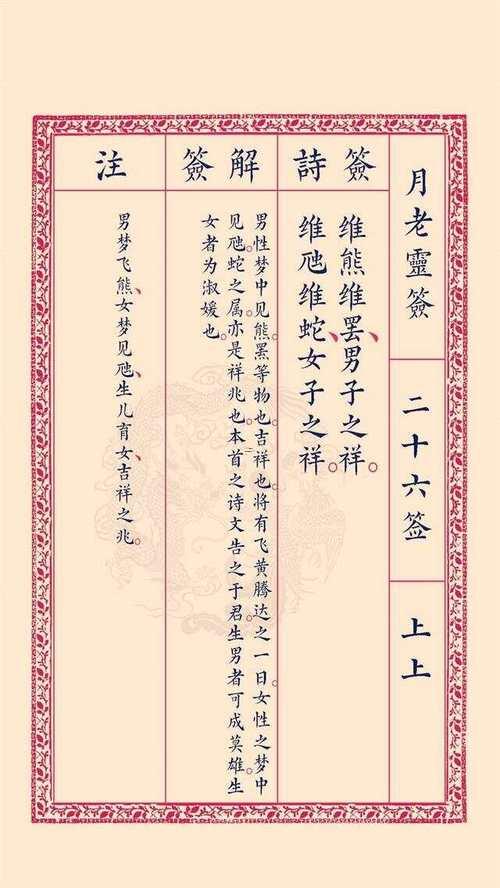 月老靈簽
二十六签
上上
簽詩
维熊维罢、男子之祥。
维虺维蛇、女子之祥。
解簽
男性梦中见熊罴等物也。吉祥也。将有飞黄腾达之一日。女性之梦中
见虺蛇之属。亦是祥兆也。本首之诗文告之于君。生男者可成莫雄。生
女者为淑媛也。
注
男梦飞熊、女梦见虺。生儿育女、吉祥之兆。